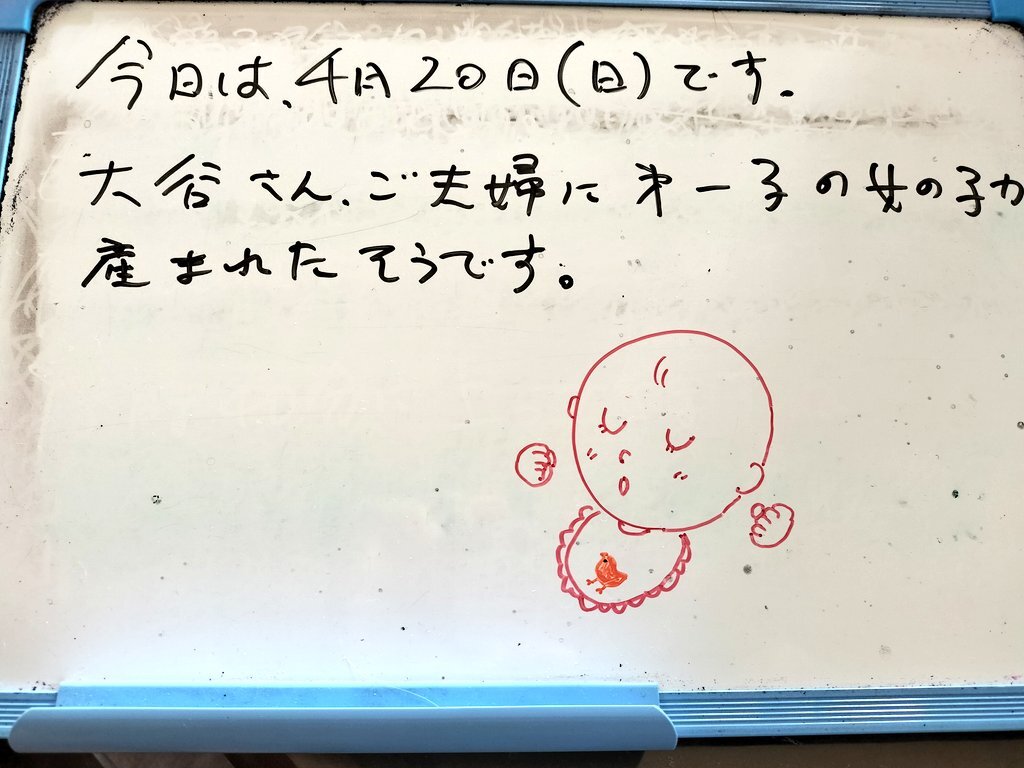 今日は、4月20日(日)です.
大谷さん、ご夫婦に第一子の女の子が
産まれたそうです。